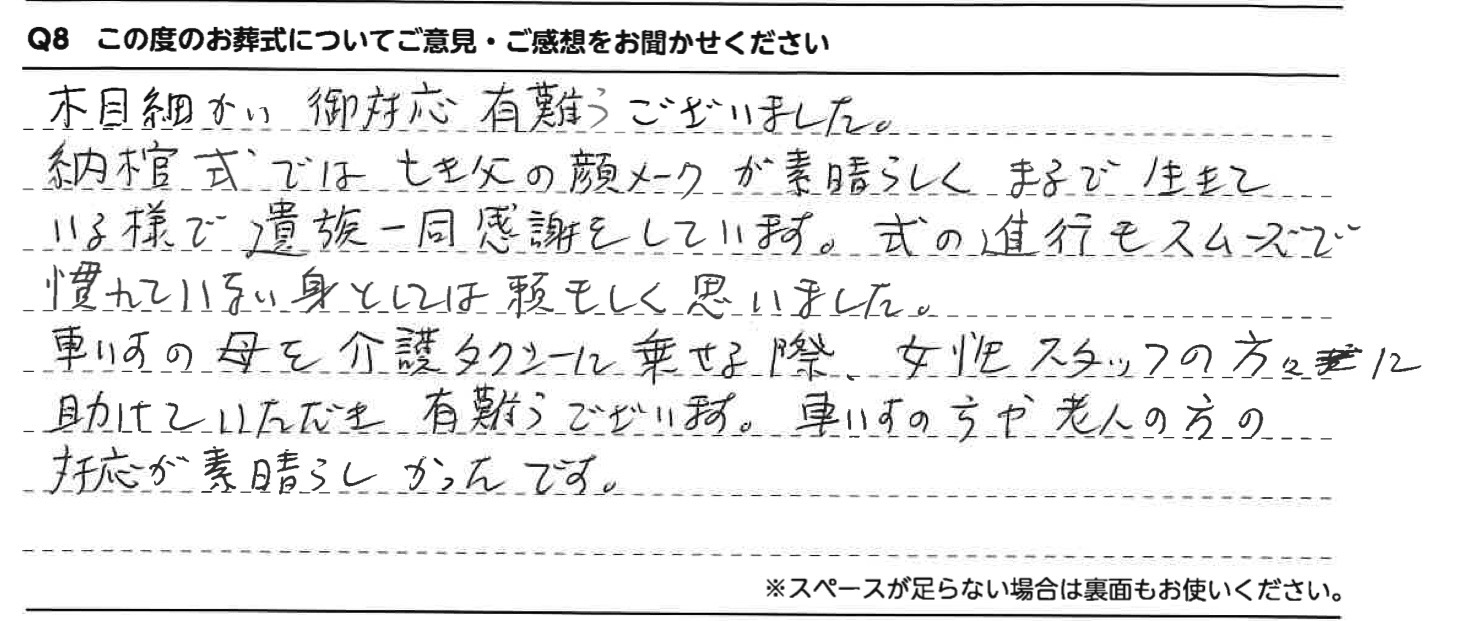 Q8 この度のお葬式についてご意見・ご感想をお聞かせください
木目細かい 御対応 有難うございました。
納棺式では 亡き父の顔メークが素晴らしく まるで生きて
いる様で遺族一同感謝をしています。式の進行もスムーズで
慣れていない身としては頼もしく思いました。
車いすの母を介護タクシーに乗せる際、女性スタッフの方々に
助けていただき 有難うございます。車いすの方や老人の方の
対応が素晴らしかったです。
※スペースが足らない場合は裏面もお使いください。